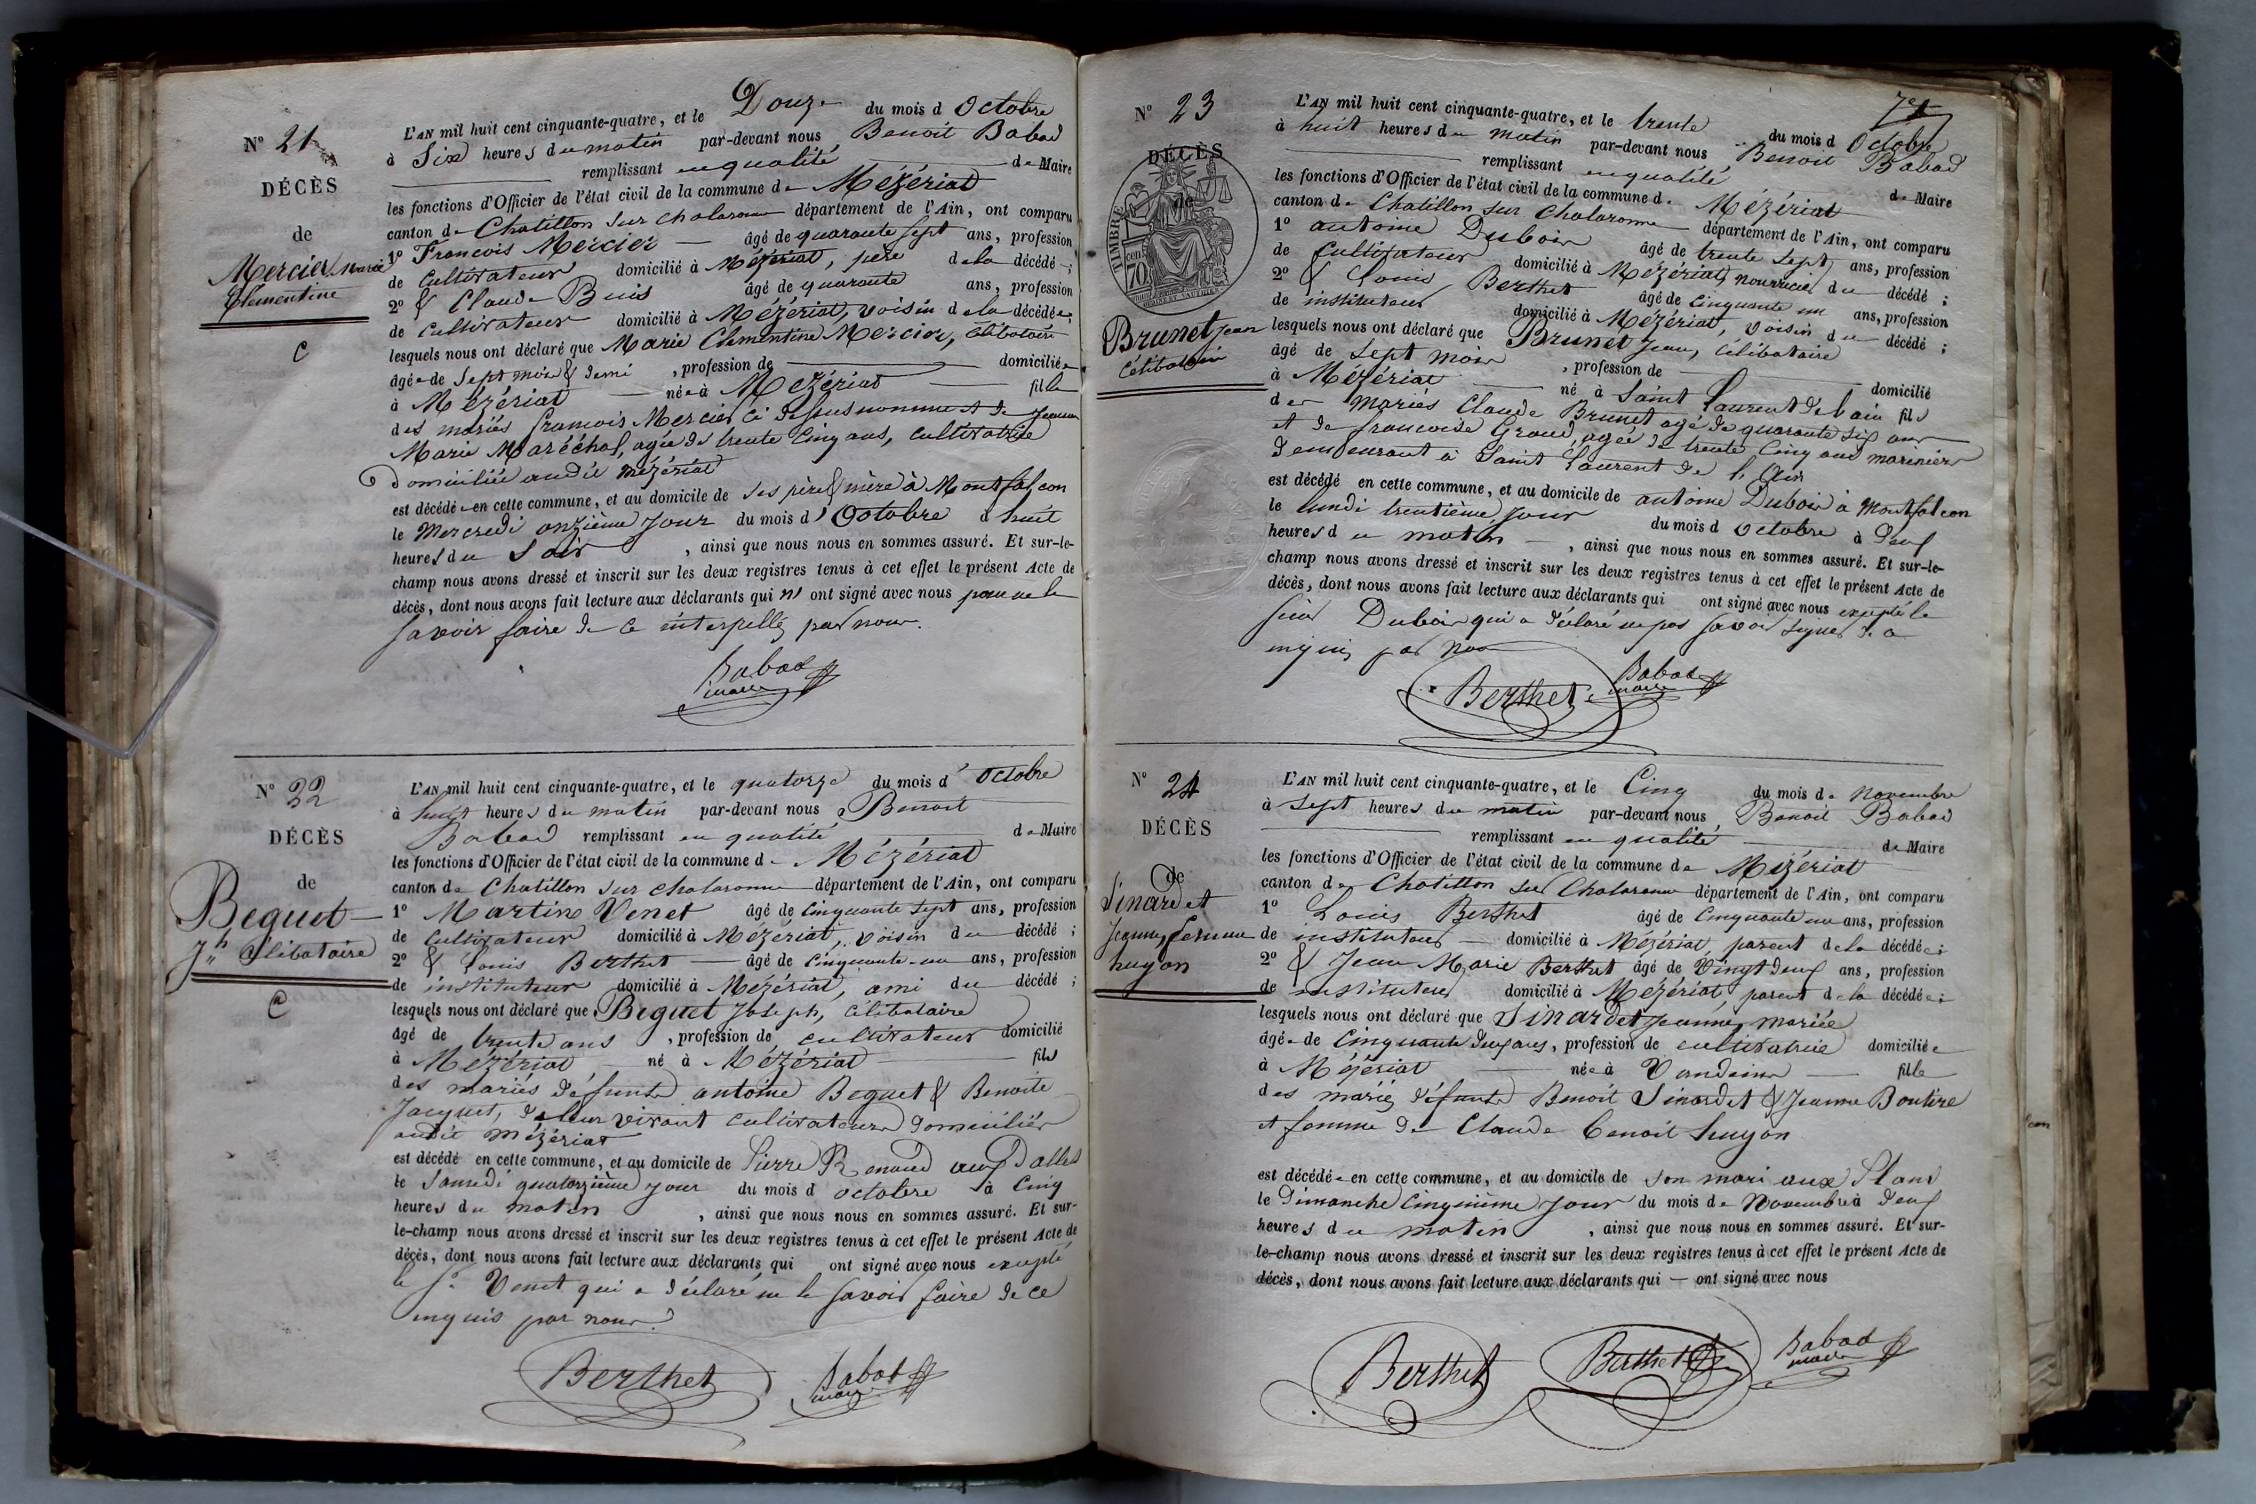 N° 21
DÉCÈS
de
Mercier Marie
Clementine
C
L'AN mil huit cent cinquante-quatre, et le Douze du mois d Octobre
à Six heures du matin par-devant nous Benoit Babad
remplissant en qualité de Maire
les fonctions d'Officier de l'état civil de la commune de Mézériat
canton de Chatillon sur chalaronne département de l'Ain, ont comparu
1° François Mercier âgé de quarante sept ans, profession
de Cultivateur domicilié à Mézériat, père de la décédé ;
2° & Claude Buis âgé de quarante ans, profession
de cultivateur domicilié à Mézériat, voisin de la décédée;
lesquels nous ont déclaré que Marie Clementine Mercier, célibataire
âgée de Sept mois & demi , profession de domiciliée
à Mézériat née à Mézériat fille
des mariés francois Mercier ci dessus nommé et de Jeanne
Marie Maréchal, agée de trente cinq ans, cultivatrice
domiciliée audit mézériat
est décédée en cette commune, et au domicile de ses père & mère à Montfalcon
le Mercredi onzième Jour du mois d'Octobre à huit
heures du Soir , ainsi que nous nous en sommes assuré. Et sur-le-
champ nous avons dressé et inscrit sur les deux registres tenus à cet effet le présent Acte de
décès, dont nous avons fait lecture aux déclarants qui n' ont signé avec nous pour ne le
savoir faire de ce interpellés par nous.
Babad
maire
N° 22
DÉCÈS
de
Beguet
Jh célibataire
C
L'AN mil huit cent cinquante-quatre, et le quatorze du mois d' Octobre
à huit heures du matin par-devant nous Benoit
Babad remplissant en qualité de Maire
les fonctions d'Officier de l'état civil de la commune d Mézériat
canton de Chatillon sur chalaronne département de l'Ain, ont comparu
1° Martin Venet âgé de cinquante sept ans, profession
de cultivateur domicilié à Mézériat, voisin du décédé ;
2° & Louis Berthet âgé de cinquante un ans, profession
de instituteur domicilié à Mézériat, ami du décédé ;
lesquels nous ont déclaré que Beguet Joseph, célibataire
âgé de trente ans , profession de cultivateur domicilié
à Mézériat né à Mézériat fils
des mariés défunts antoine Beguet & Benoite
Jacquet, de leur vivant cultivateurs domiciliés
audit mézériat
est décédé en cette commune, et au domicile de Pierre Renaud aux Dalles
le Samedi quatorzième jour du mois d octobre à Cinq
heures du matin , ainsi que nous nous en sommes assuré. Et sur-
le-champ nous avons dressé et inscrit sur les deux registres tenus à cet effet le présent Acte de
décès, dont nous avons fait lecture aux déclarants qui ont signé avec nous excepté
le Sr Venet qui a déclaré ne le savoir faire de ce
enquis par nous.
Berthet
Babad
maire
74
N° 23
DÉCÈS
de
TIMBRE
70
Brunet Jean
Célibataire
L'AN mil huit cent cinquante-quatre, et le trente du mois d Octobre
à huit heures du matin par-devant nous Benoit Babad
remplissant en qualité de Maire
les fonctions d'Officier de l'état civil de la commune de Mézériat
canton de Chatillon sur Chalaronne département de l'Ain, ont comparu
1° antoine Dubois âgé de trente sept ans, profession
de Cultivateur domicilié à Mézériat, nourricier du décédé ;
2° & Louis Berthet âgé de cinquante un ans, profession
de instituteur domicilié à Mézériat, voisin du décédé ;
lesquels nous ont déclaré que Brunet Jean, célibataire
âgé de sept mois , profession de domicilié
à Mézériat né à Saint Laurent de l'ain fils
des mariés Claude Brunet agé de quarante six ans
et de francoise Graud, agée de trente cinq ans mariniers
demeurant à Saint Laurent de l'Ain
est décédé en cette commune, et au domicile de antoine Dubois à Montfalcon
le lundi trentième jour du mois d octobre à deux
heures du matin , ainsi que nous nous en sommes assuré. Et sur-le-
champ nous avons dressé et inscrit sur les deux registres tenus à cet effet le présent Acte de
décès, dont nous avons fait lecture aux déclarants qui ont signé avec nous excepté le
sieur Dubois qui a déclaré ne pas savoir signer de ce
enquis par nous
Berthet
Babad
maire
N° 24
DÉCÈS
de
Sinardet
Jeanne, femme
huyon
L'AN mil huit cent cinquante-quatre, et le Cinq du mois de Novembre
à sept heures du matin par-devant nous Benoit Babad
remplissant en qualité de Maire
les fonctions d'Officier de l'état civil de la commune de Mézériat
canton de Chatillon sur Chalaronne département de l'Ain, ont comparu
1° Louis Berthet âgé de Cinquante un ans, profession
de instituteur domicilié à Mézériat, parent de la décédée;
2° & Jean Marie Berthet âgé de Vingt deux ans, profession
de instituteur domicilié à Mézériat, parent de la décédée;
lesquels nous ont déclaré que Sinardet Jeanne, mariée
âgée de Cinquante deux ans, profession de cultivatrice domiciliée
à Mézériat née à Vandeins fille
des mariés défunts Benoit Sinardet & Jeanne Boutire
et femme de Claude Benoit huyon
est décédée en cette commune, et au domicile de son mari aux Plans
le Dimanche cinquième jour du mois de Novembre à deux
heures du matin , ainsi que nous nous en sommes assuré. Et sur-
le-champ nous avons dressé et inscrit sur les deux registres tenus à cet effet le présent Acte de
décès, dont nous avons fait lecture aux déclarants qui ont signé avec nous
Berthet
Berthet
Babad
maire